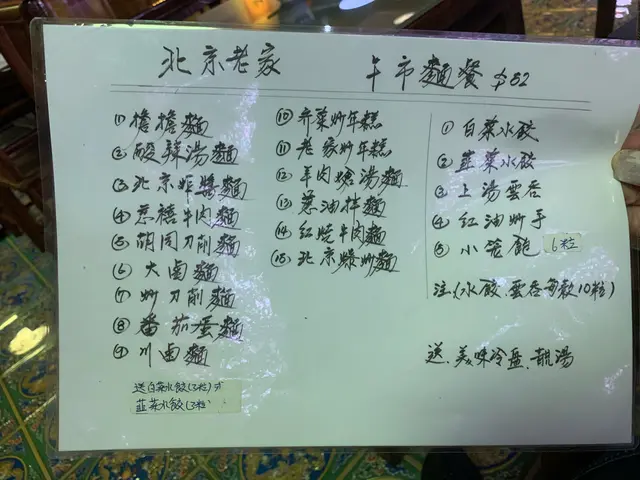 北京老家 午市麵餐 $82
① 檐檐麵
② 酸辣湯麵
③ 北京炸醬麵
④ 京禧牛肉麵
⑤ 胡同刀削麵
⑥ 大鹵麵
⑦ 炒刀削麵
⑧ 番茄蛋麵
⑨ 川鹵麵
送白菜水餃(3粒)或
韮菜水餃(3粒)
⑩ 炒年糕
⑪ 老家炒年糕
⑫ 羊肉燴湯麵
⑬ 蔥油拌麵
⑭ 紅燒牛肉麵
⑮ 北京爆炒麵
① 白菜水餃
② 韮菜水餃
③ 上湯雲吞
④ 紅油炒手
⑤ 小笼飽 6粒
注(水餃、雲吞每款10粒)
送、美味冷盘、靚湯